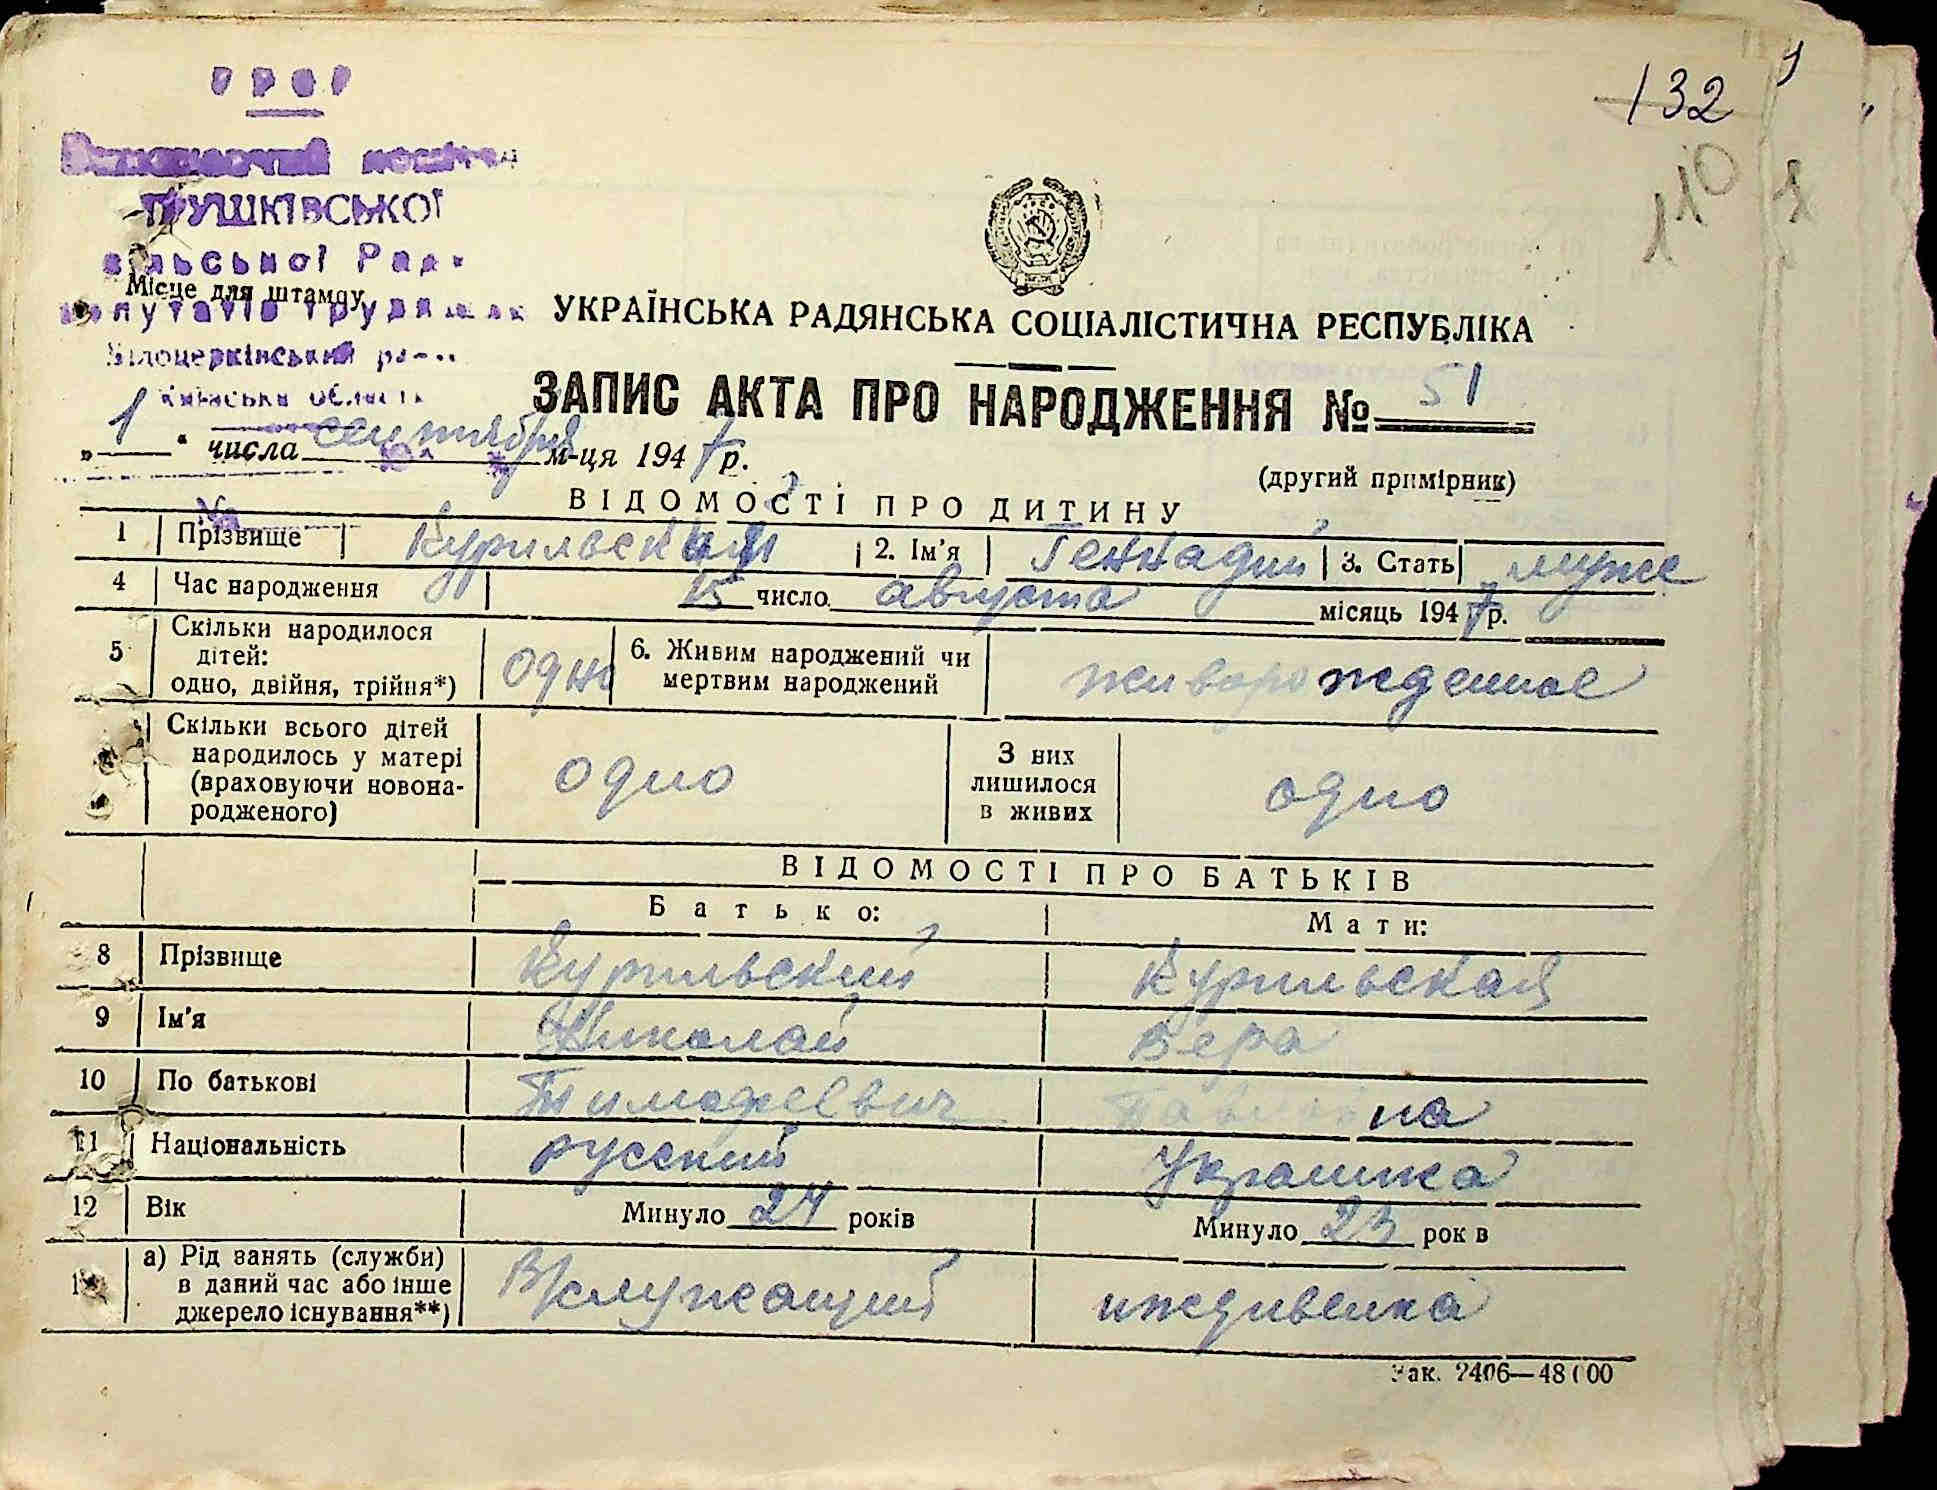 УРСР
132
Виконавчий комітет
110
ТРУШКІВСЬКОЇ
сільської Ради
Місце для штампу
депутатів трудящих
УКРАЇНСЬКА РАДЯНСЬКА СОЦІАЛІСТИЧНА РЕСПУБЛІКА
Білоцерківський
Київська область
ЗАПИС АКТА ПРО НАРОДЖЕННЯ № 51
„1“ числа сентября м-ця 1947 р.
(другий примірник)
ВІДОМОСТІ ПРО ДИТИНУ
№
1 Прізвище Курильский 2. Ім'я Геннадий 3. Стать муже
4 Час народження 15 число августа місяць 1947 р.
5 Скільки народилося дітей: одно, двійня, трійня*) одно 6. Живим народжений чи мертвим народжений живорожденное
Скільки всього дітей народилось у матері (враховуючи новонародженого) одно З них лишилося в живих одно
ВІДОМОСТІ ПРО БАТЬКІВ
Батько: Мати:
8 Прізвище Курильский Курильская
9 Ім'я Николай Вера
10 По батькові Тимофеевич Павловна
11 Національність русский Украинка
12 Вік Минуло 24 років Минуло 23 рок в
1 а) Рід занять (служби) в даний час або інше джерело існування**) В/служащий иждивенка
Зак. 2406—48000